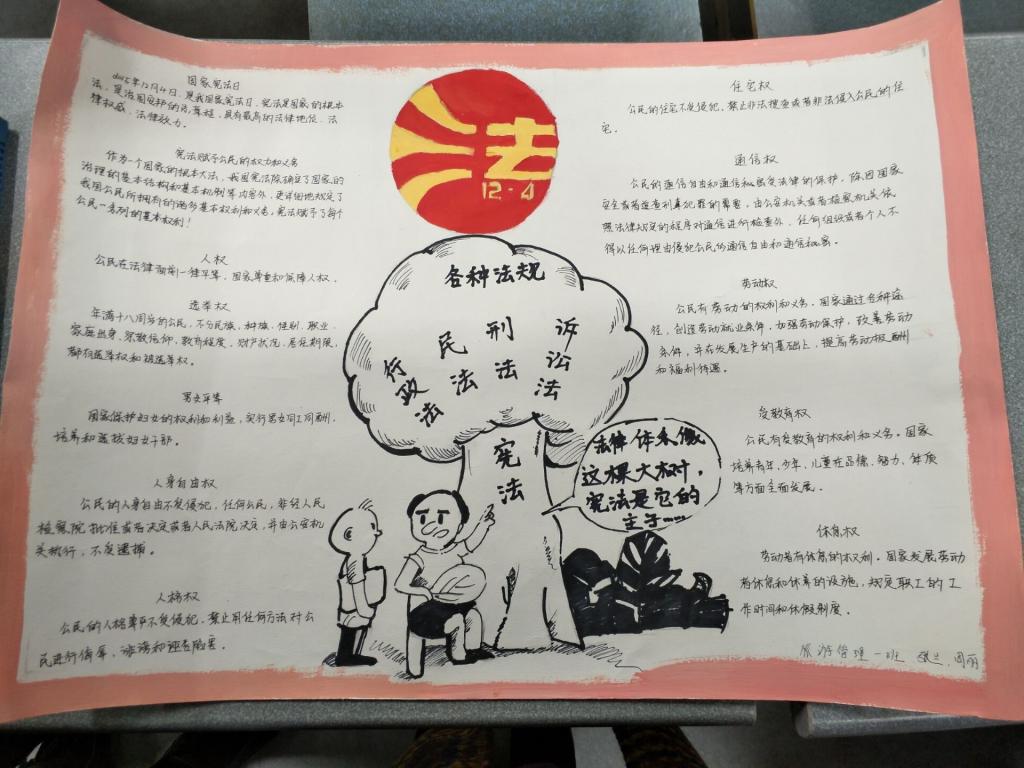 国家宪法日
2015年12月4日，是我国国家宪法日，宪法是国家的根本
法，是治国安邦的总章程，具有最高的法律地位、法
律权威、法律效力。
宪法赋予公民的权力和义务
作为一个国家的根本大法，我国宪法除确立了国家的
治理的基本结构和基本机制等内容外，更详细地规定了
我国公民所拥有的诸多基本权利和义务，宪法赋予了每个
公民一系列的基本权利！
人权
公民在法律面前一律平等，国家尊重和保障人权。
选举权
年满十八周岁的公民，不分民族、种族、性别、职业、
家庭出身、宗教信仰、教育程度、财产状况、居住期限，
都有选举权和被选举权。
男女平等
国家保护妇女的权利和利益，实行男女同工同酬，
培养和选拔妇女干部。
人身自由权
公民的人身自由不受侵犯，任何公民，非经人民
检察院批准或者决定或者人民法院决定，并由公安机
关执行，不受逮捕。
人格权
公民的人格尊严不受侵犯，禁止用任何方法对公
民进行侮辱、诽谤和诬告陷害。
法
12·4
各种法规
行政法
民法
刑法
诉讼法
宪法
法律体系像
这棵大树，
宪法是它的
主干……
住宅权
公民的住宅不受侵犯，禁止非法搜查或者非法侵入公民的住
宅。
通信权
公民的通信自由和通信秘密受法律的保护，除因国家
安全或者追查刑事犯罪的需要，由公安机关或者检察机关依
照法律规定的程序对通信进行检查外，任何组织或者个人不
得以任何理由侵犯公民的通信自由和通信秘密。
劳动权
公民有劳动的权利和义务。国家通过各种途
径，创造劳动就业条件，加强劳动保护，改善劳动
条件，并在发展生产的基础上，提高劳动报酬
和福利待遇。
受教育权
公民有受教育的权利和义务。国家
培养青年、少年、儿童在品德、智力、体质
等方面全面发展。
休息权
劳动者有休息的权利。国家发展劳动
者休息和休养的设施，规定职工的工
作时间和休假制度。
旅游管理一班 张兰、周丽